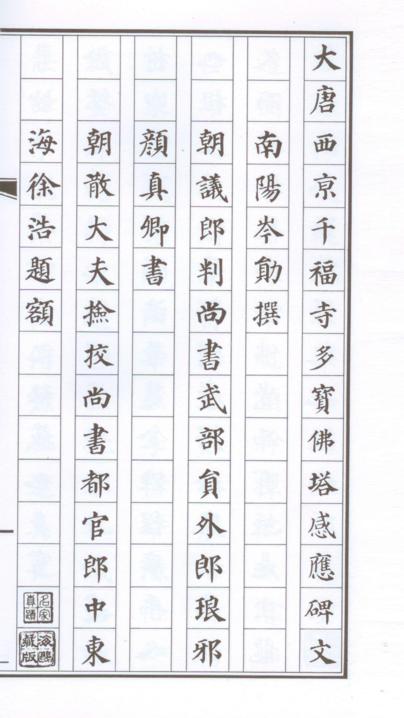 大唐西亰千福寺多寶佛塔感應碑文
南陽岑勛撰
朝議郎判尚書武部員外郎琅邪
顏真卿書
朝散大夫撿挍尚書都官郎中東
海徐浩題額
名家真蹟